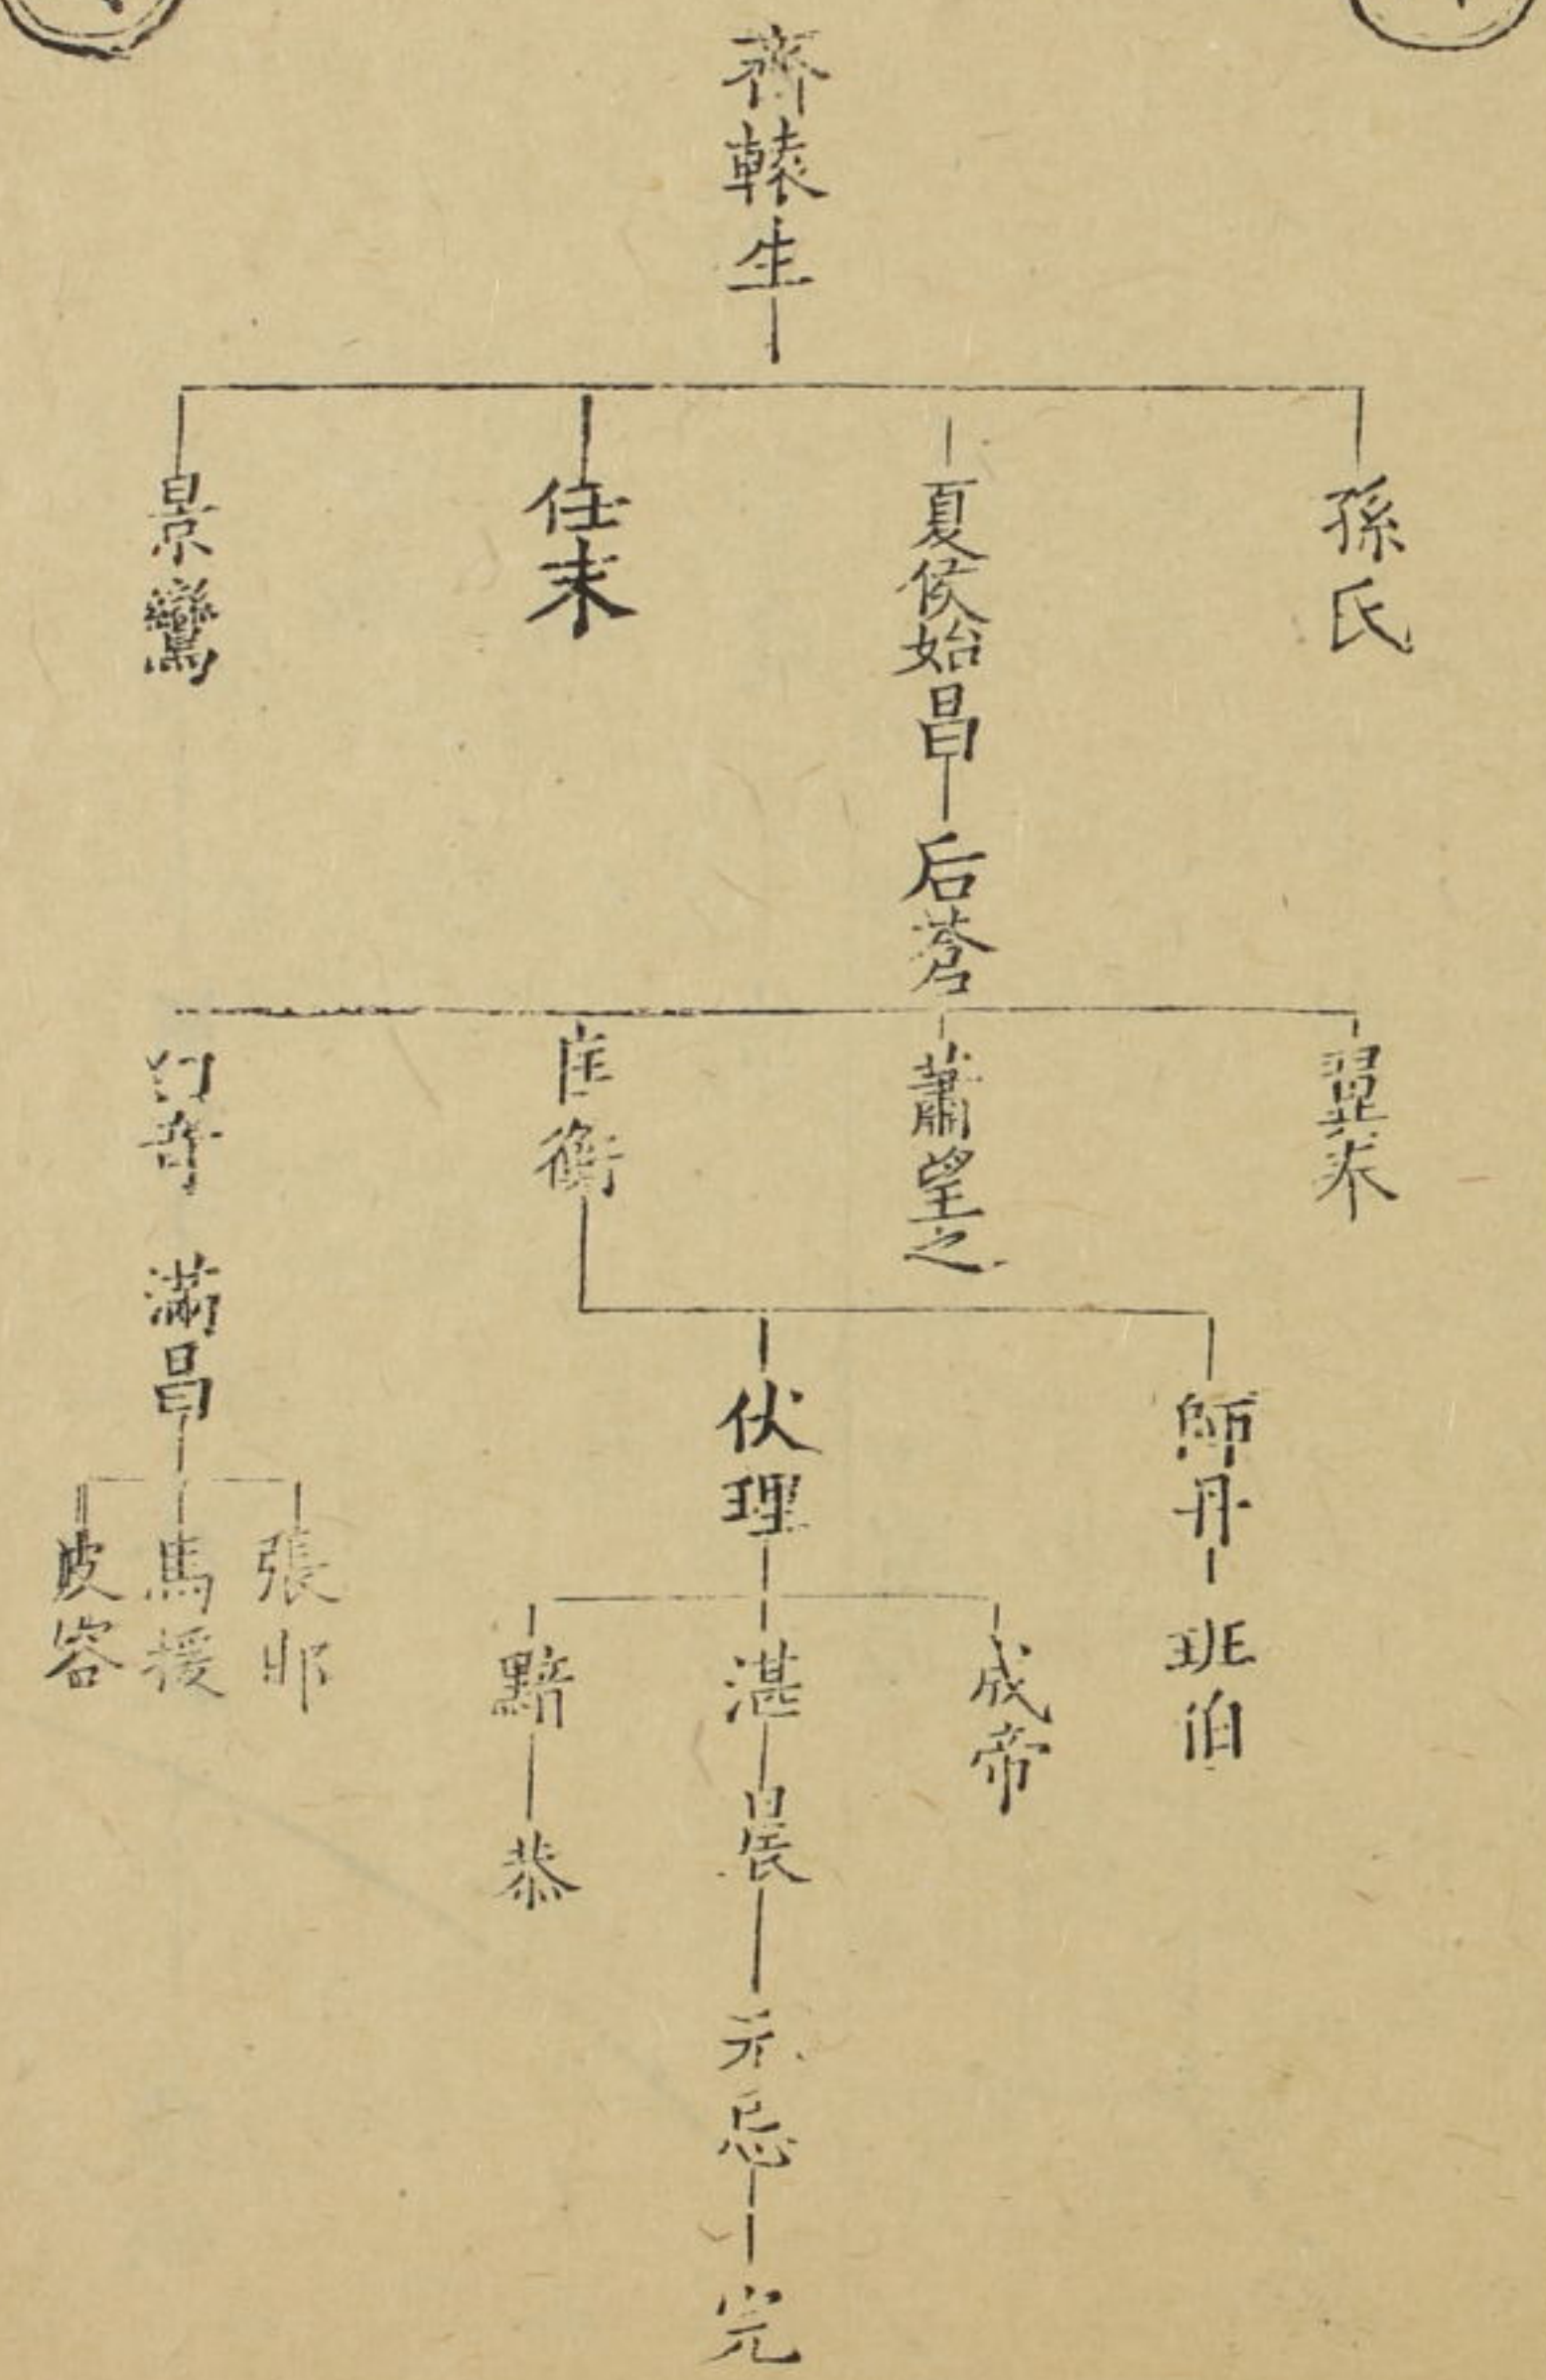 齊轅生
孫氏
夏侯始昌
后蒼
任末
景鸞
翼奉
蕭望之
匡衡
師丹
班伯
伏理
成帝
湛
晨
无忌
完
黯
恭
滿昌
張邯
馬援
皮容